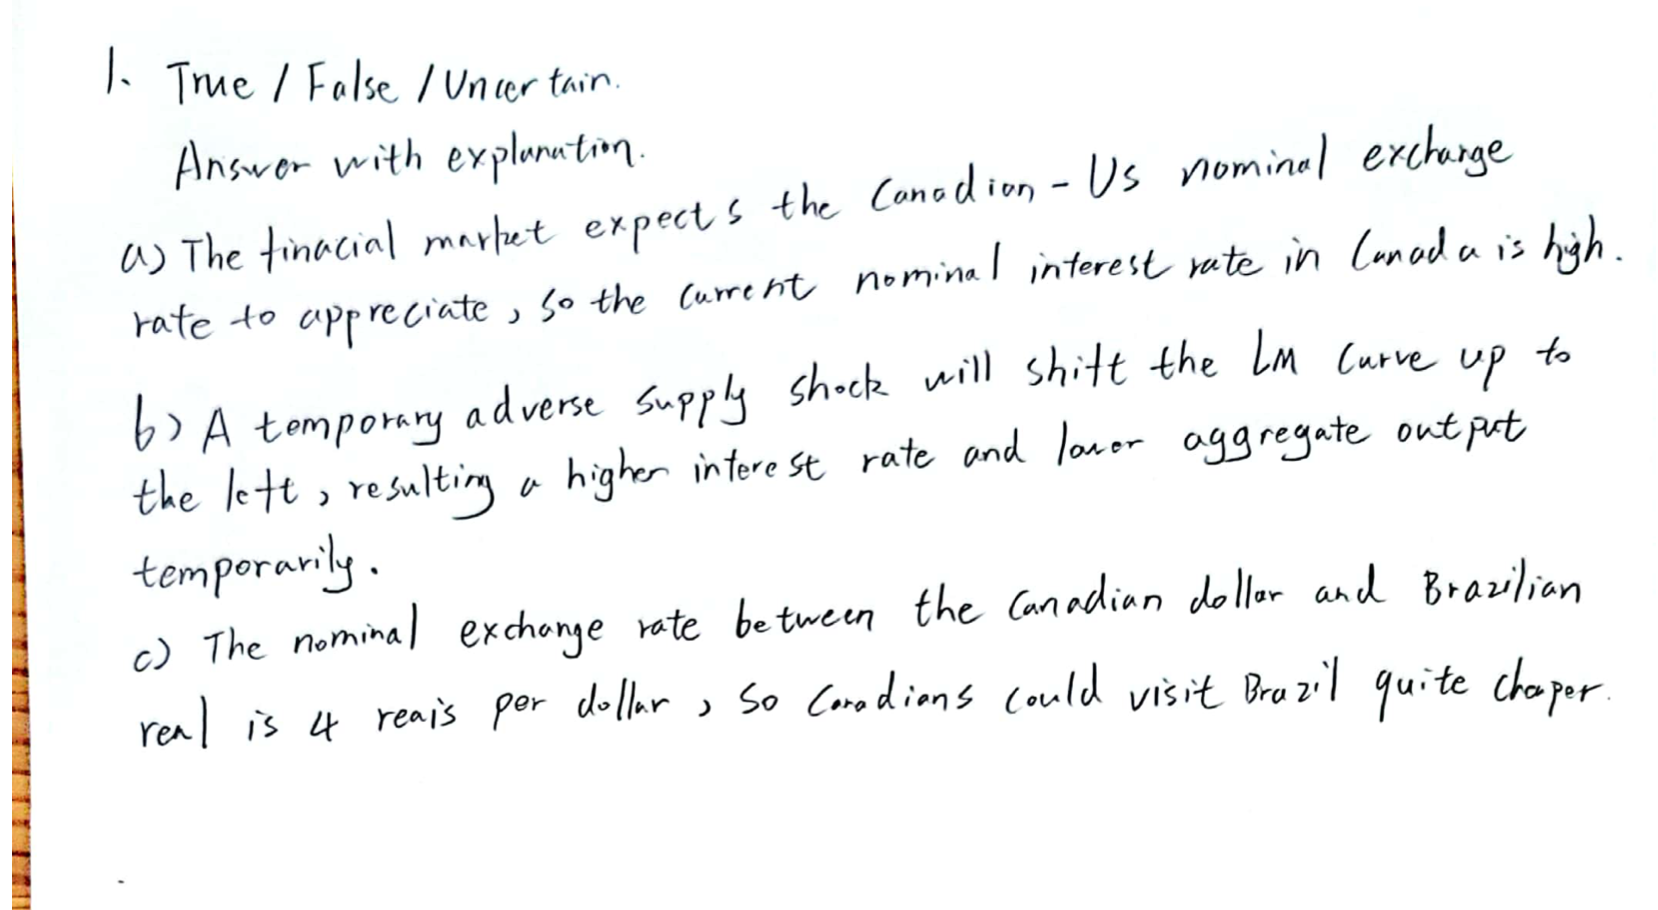 1. True / False / Uncertain.
Answer with explanation.
a) The finacial market expects the Canadian - US nominal exchange
rate to appreciate, so the current nominal interest rate in Canada is high.
b) A temporary adverse supply shock will shift the LM curve up to
the left, resulting a higher interest rate and lower aggregate output
temporarily.
c) The nominal exchange rate between the Canadian dollar and Brazilian
real is 4 reais per dollar, so Canadians could visit Brazil quite cheaper.